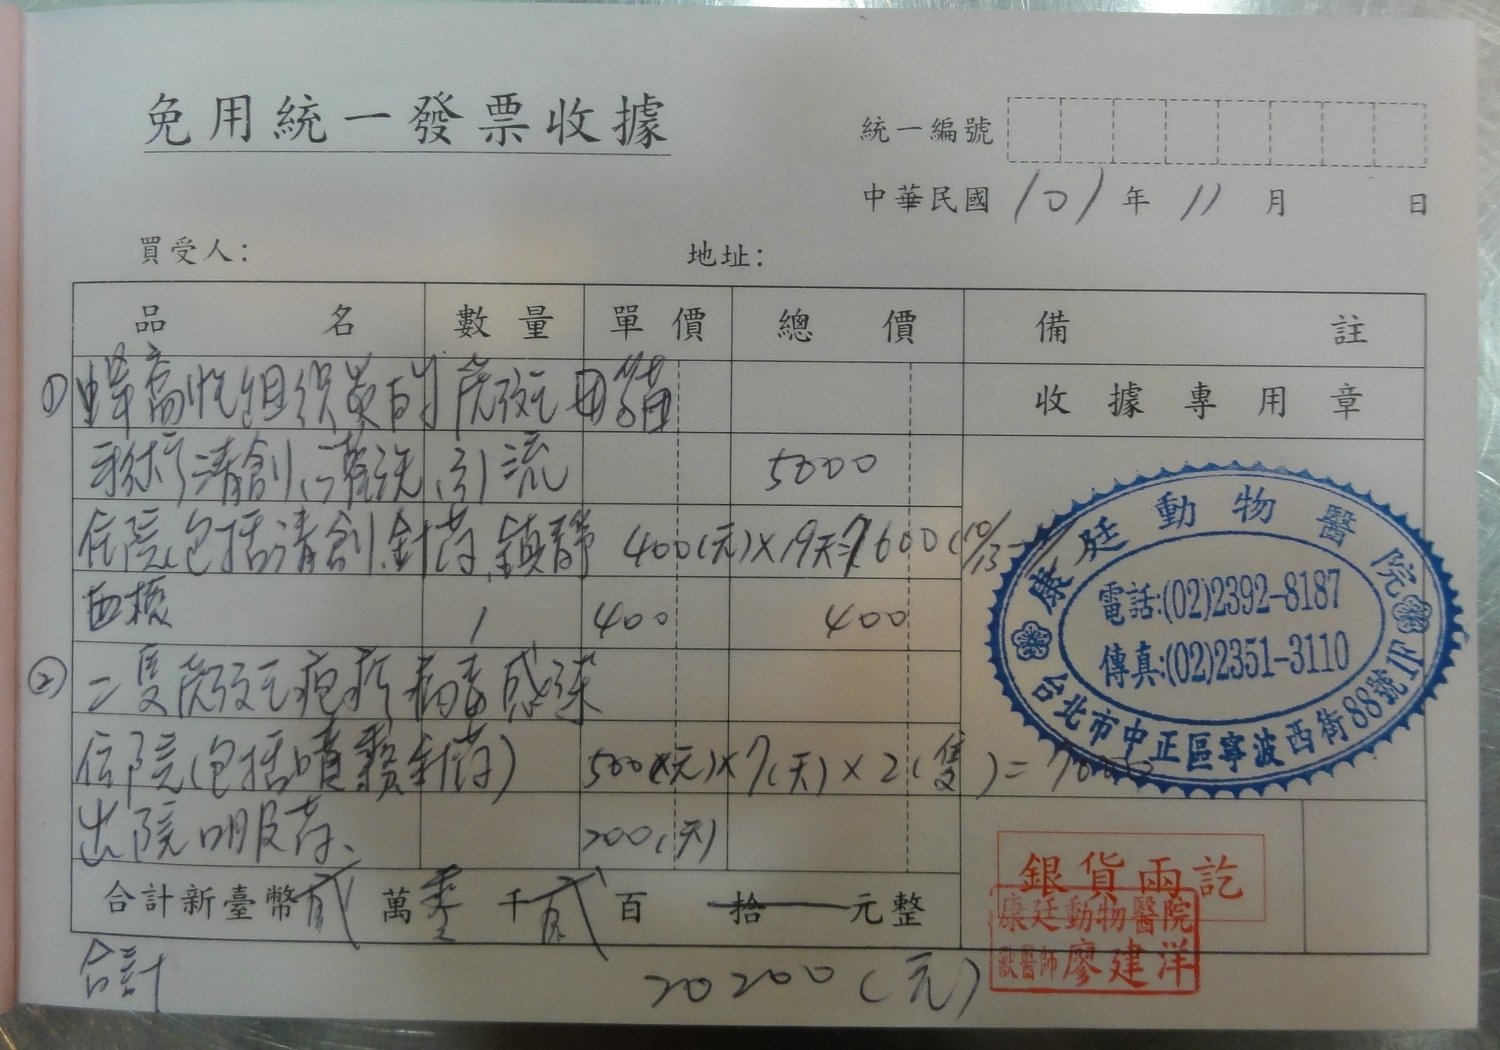 免用統一發票收據
統一編號
中華民國 101 年 11 月 日
買受人： 地址：
品名 數量 單價 總價 備註
① 蜂窩性組織炎的虎斑三母貓
收據專用章
手術清創、灌洗、引流 5000
住院(包括清創.針药.鎮靜 400(元)×19天=7600(10/13-
血檢 1 400 400
② 二隻虎斑 疱疹病毒感染
住院(包括噴霧針药) 500(元)×7(天)×2(隻)=7000
出院口服药、 200(元)
合計新臺幣 貳 萬 零 千 貳 百 拾 元整
合計 20200(元)
康廷動物醫院
電話:(02)2392-8187
傳真:(02)2351-3110
台北市中正區寧波西街88號1F
銀貨兩訖
康廷動物醫院
獸醫師 廖建洋